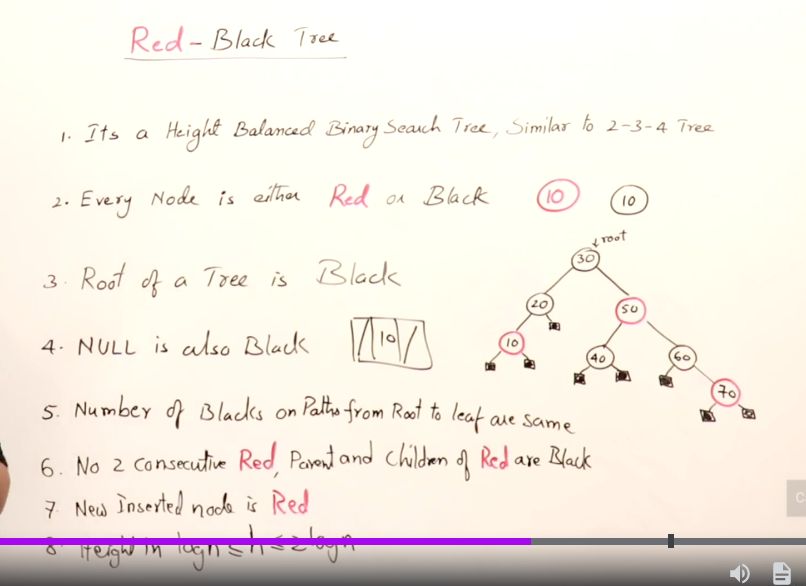 Red - Black Tree
1. Its a Height Balanced Binary Search Tree, Similar to 2-3-4 Tree
2. Every Node is either Red or Black
10
10
3. Root of a Tree is Black
root
30
20
50
10
40
60
70
4. NULL is also Black
10
5. Number of Blacks on Paths from Root to leaf are same
6. No 2 consecutive Red, Parent and Children of Red are Black
7. New Inserted node is Red
8. Height in logn ≤ h ≤ 2logn
C